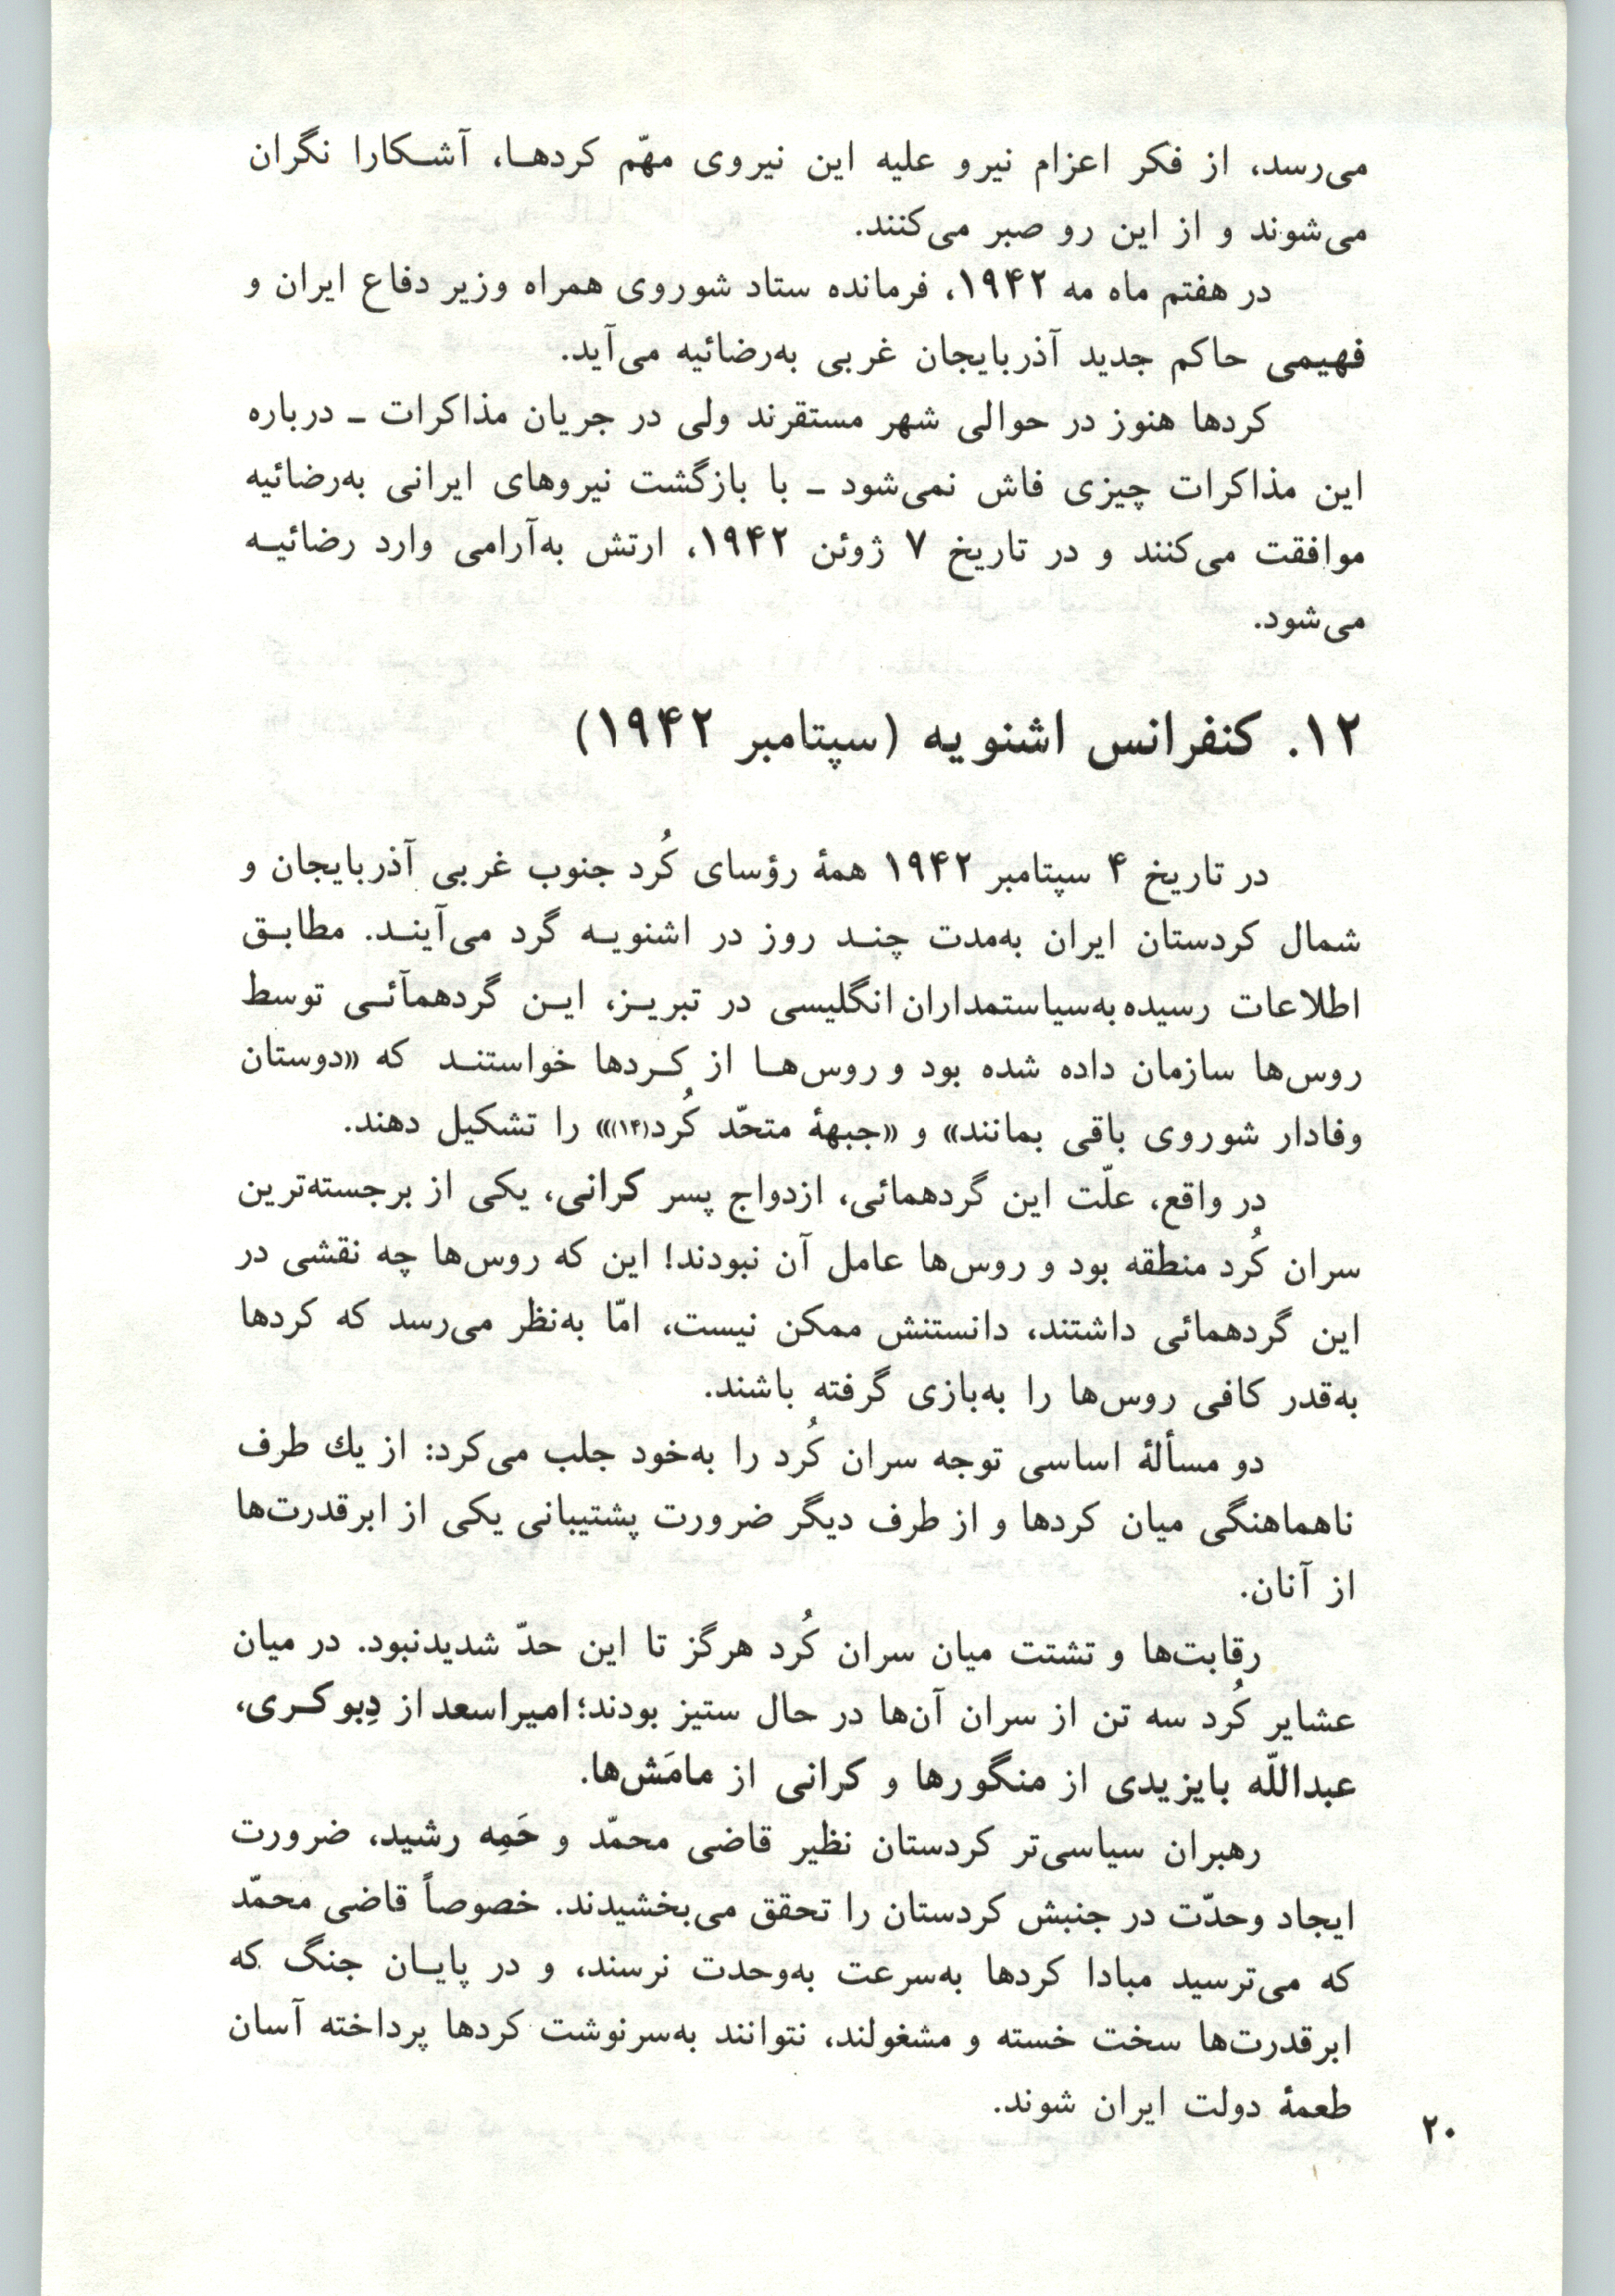 می‌رسد، از فکر اعزام نیرو علیه این نیروی مهّم کردهـا، آشـکارا نگران
می‌شوند و از این رو صبر می‌کنند.
در هفتم ماه مه ۱۹۴۲، فرمانده ستاد شوروی همراه وزیر دفاع ایران و
فهیمی حاکم جدید آذربایجان غربی به‌رضائیه می‌آید.
کردها هنوز در حوالی شهر مستقرند ولی در جریان مذاکرات ـ درباره
این مذاکرات چیزی فاش نمی‌شود ـ با بازگشت نیروهای ایرانی به‌رضائیه
موافقت می‌کنند و در تاریخ ۷ ژوئن ۱۹۴۲، ارتش به‌آرامی وارد رضائیـه
می‌شود.
۱۲. کنفرانس اشنویه (سپتامبر ۱۹۴۲)
در تاریخ ۴ سپتامبر ۱۹۴۲ همهٔ رؤسای کُرد جنوب غربی آذربایجان و
شمال کردستان ایران به‌مدت چنـد روز در اشنویـه گرد می‌آینـد. مطابـق
اطلاعات رسیده به‌سیاستمداران انگلیسی در تبریـز، ایـن گردهمآئـی توسط
روس‌ها سازمان داده شده بود و روس‌هـا از کـردها خواستنـد که «دوستان
وفادار شوروی باقی بمانند» و «جبههٔ متحّد کُرد(۱۴)» را تشکیل دهند.
در واقع، علّت این گردهمائی، ازدواج پسر کرانی، یکی از برجسته‌ترین
سران کُرد منطقه بود و روس‌ها عامل آن نبودند! این که روس‌ها چه نقشی در
این گردهمائی داشتند، دانستنش ممکن نیست، امّا به‌نظر می‌رسد که کردها
به‌قدر کافی روس‌ها را به‌بازی گرفته باشند.
دو مسألهٔ اساسی توجه سران کُرد را به‌خود جلب می‌کرد: از یك طرف
ناهماهنگی میان کردها و از طرف دیگر ضرورت پشتیبانی یکی از ابرقدرت‌ها
از آنان.
رقابت‌ها و تشتت میان سران کُرد هرگز تا این حدّ شدیدنبود. در میان
عشایر کُرد سه تن از سران آن‌ها در حال ستیز بودند؛ امیراسعد از دِبوکـری،
عبداللّه بایزیدی از منگورها و کرانی از مامَش‌ها.
رهبران سیاسی‌تر کردستان نظیر قاضی محمّد و حَمِه رشید، ضرورت
ایجاد وحدّت در جنبش کردستان را تحقق می‌بخشیدند. خصوصاً قاضی محمّد
که می‌ترسید مبادا کردها به‌سرعت به‌وحدت نرسند، و در پایـان جنگ که
ابرقدرت‌ها سخت خسته و مشغولند، نتوانند به‌سرنوشت کردها پرداخته آسان
طعمهٔ دولت ایران شوند.
۲۰